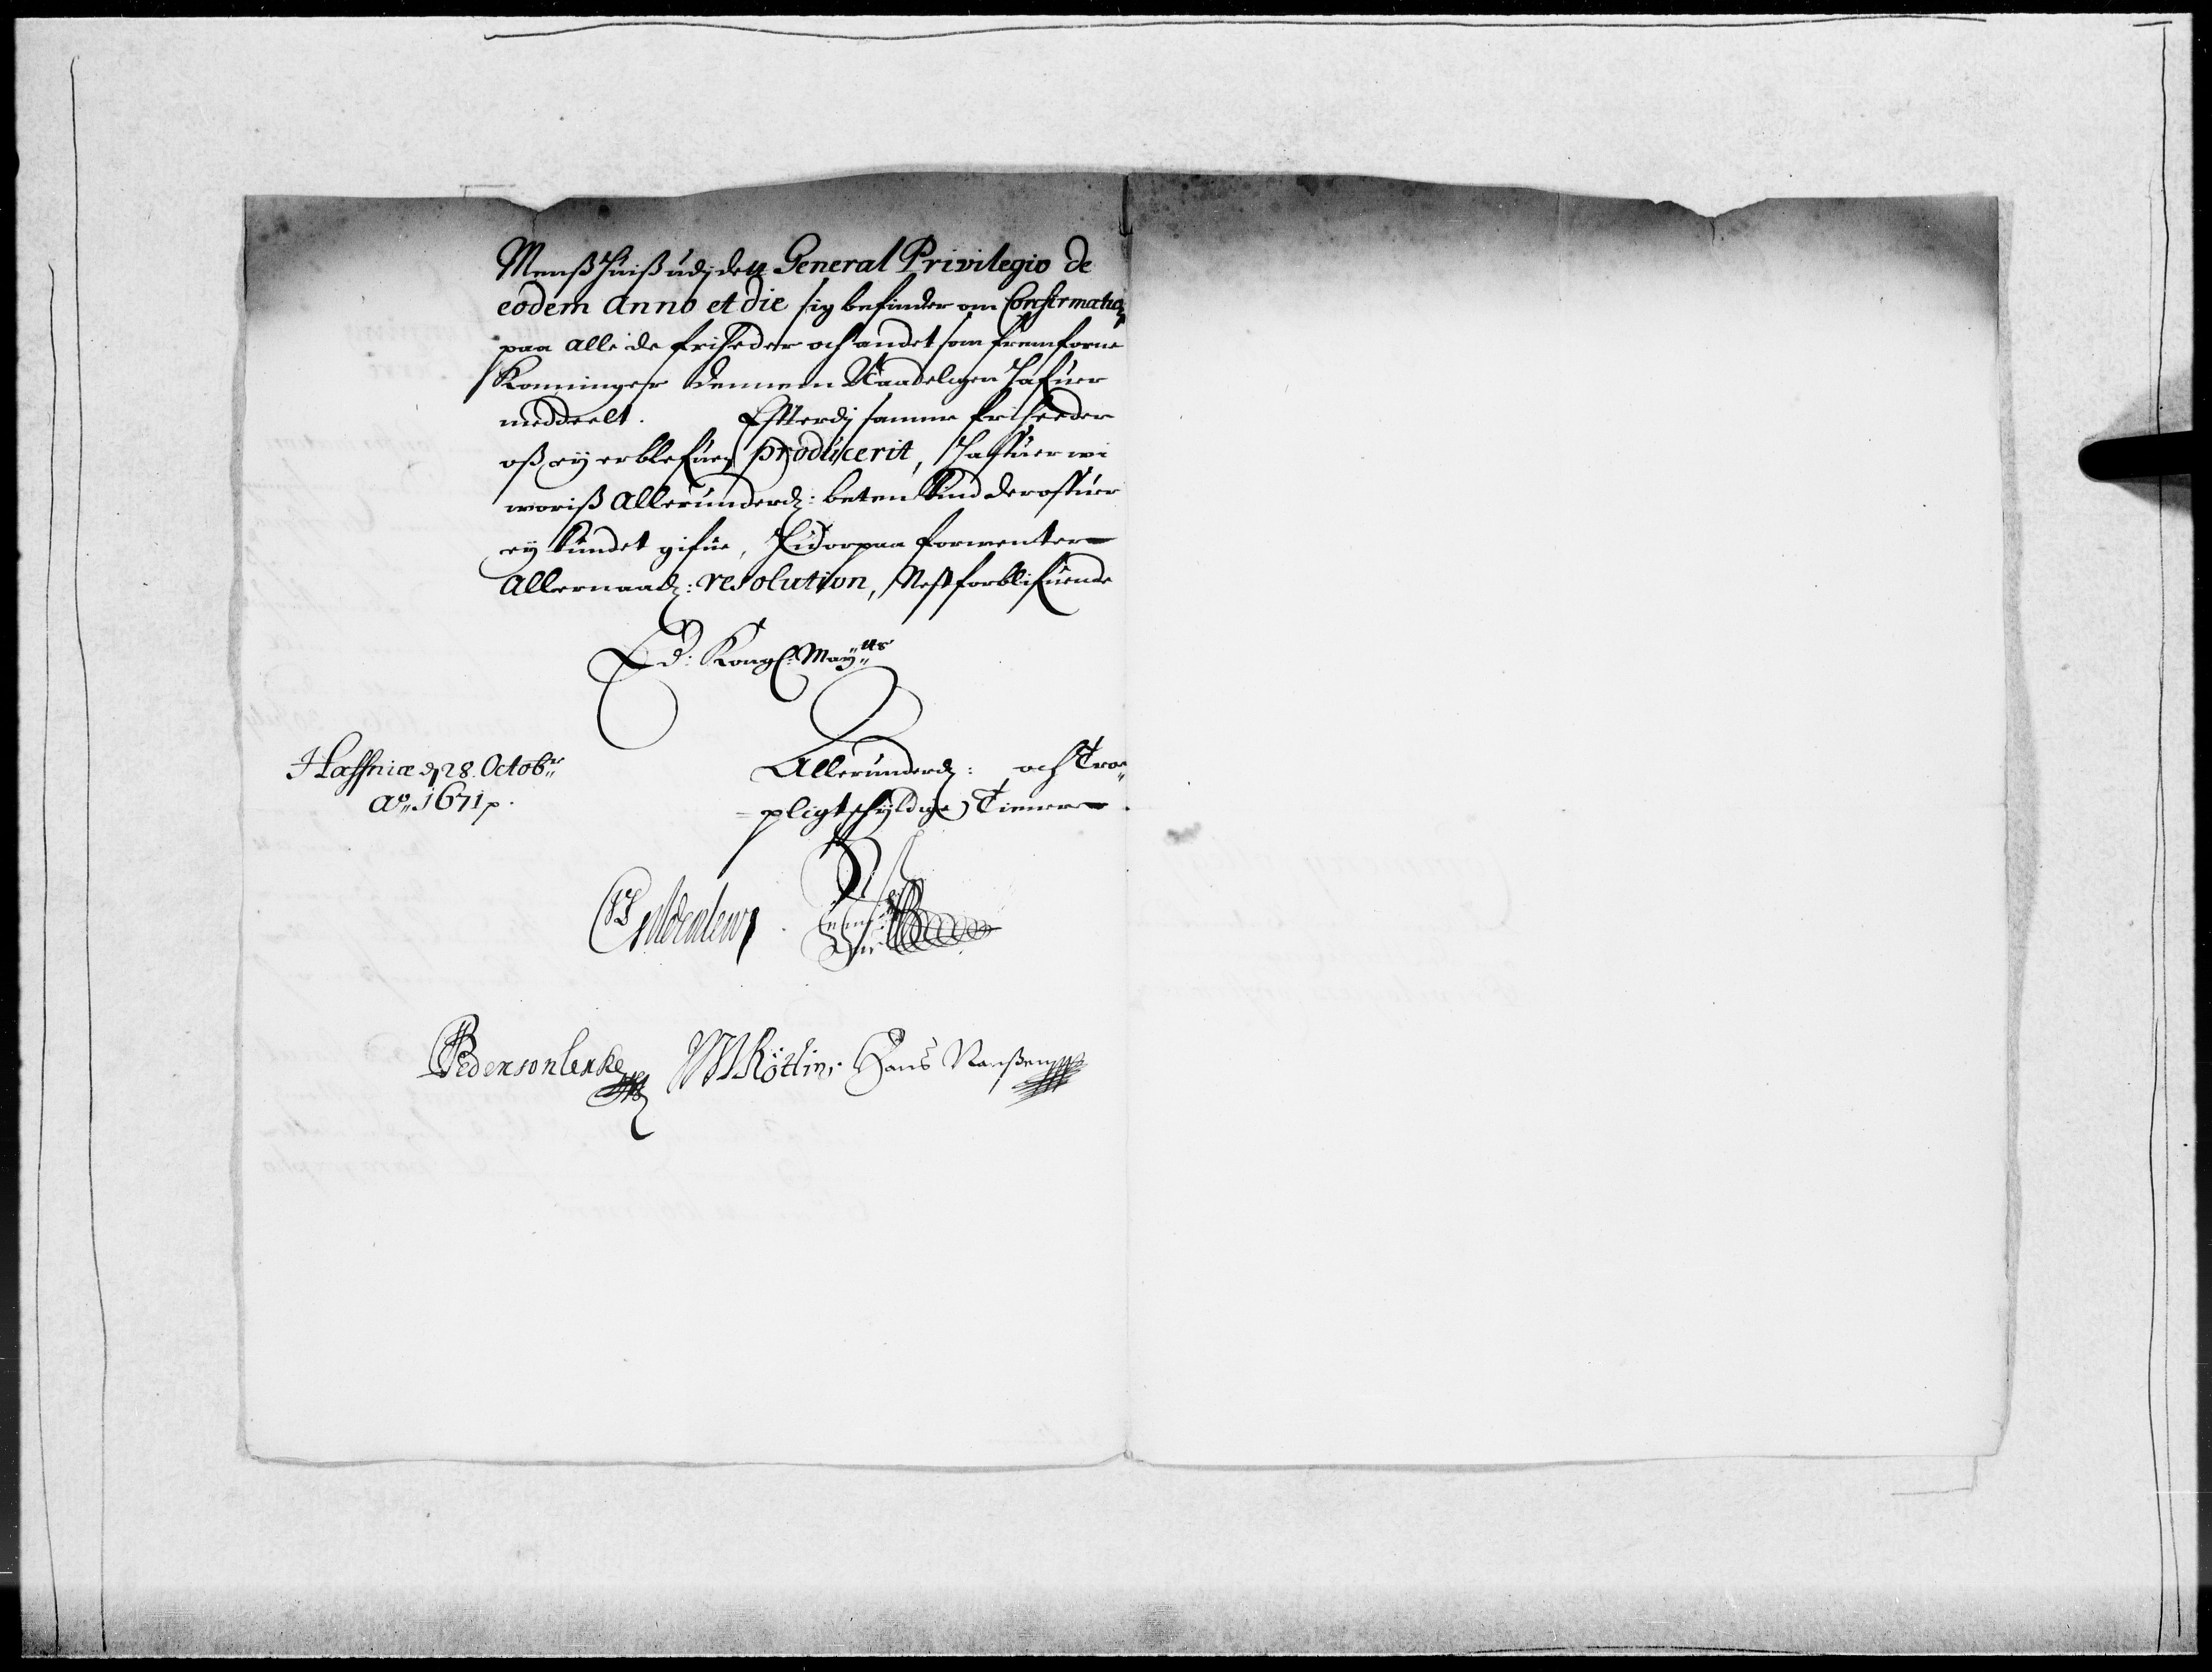 Menß huiß udj det General Privilegio de
eodem anno et die sig befinder om Confirmation
paa alle de friheder och andet som fremforne
Konninger dennem Naadeligen hafuer
meddeelt. Efterdj samme friheeder
oß ey erblefuen producerit, Haffuer wi
woriß allerunderd: betenkind derofuer
ey kundet gifue, Huorpaa formenter
allernaad: resolution, Nest forblifuende
Ed: Kongl: Mayts
Allerunderd: och Troe
pligtschyldige Tienere.
Haffniæ d 28. Octobr
ao 1671 p.
Pedersonlerke Hans Nanßen